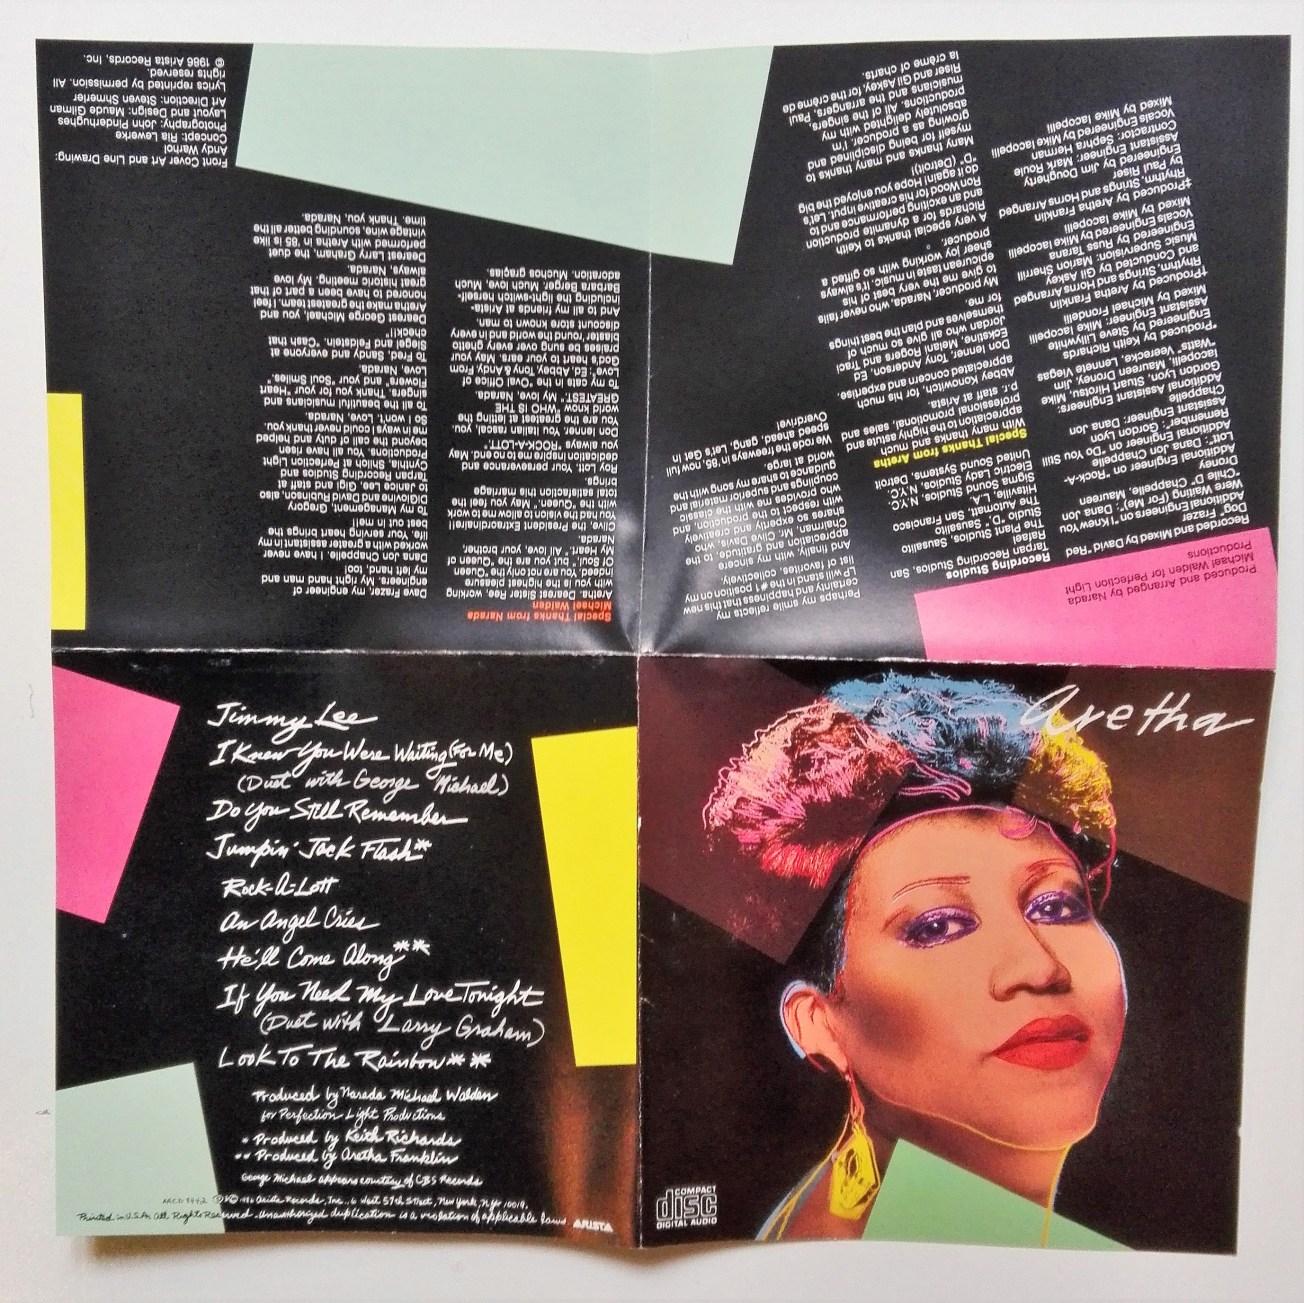 Aretha
COMPACT
disc
DIGITAL AUDIO
Jimmy Lee
I Knew You Were Waiting (For Me)
(Duet with George Michael)
Do You Still Remember
Jumpin' Jack Flash*
Rock-A-Lott
An Angel Cries
He'll Come Along**
If You Need My Love Tonight
(Duet with Larry Graham)
Look To The Rainbow**
Produced by Narada Michael Walden
for Perfection Light Productions
* Produced by Keith Richards
** Produced by Aretha Franklin
George Michael appears courtesy of CBS Records
ARCD 8442 ℗© 1986 Arista Records, Inc., 6 West 57th Street, New York, NY 10019.
Printed in U.S.A. All Rights Reserved. Unauthorized duplication is a violation of applicable laws. ARISTA
Produced and Arranged by Narada
Michael Walden for Perfection Light
Productions
Recorded and Mixed by David "Red
Dog" Frazer
Additional Engineers on "I Knew You
Were Waiting (For Me)": Dana Jon
"Chile D" Chappelle, Maureen
Droney
Additional Engineer on "Rock-A-
Lott": Dana Jon Chappelle
Additional Engineer on "Do You Still
Remember": Gordon Lyon
Assistant Engineer: Dana Jon
Chappelle
Additional Assistant Engineers:
Gordon Lyon, Stuart Hirotsu, Mike
Iacopelli, Maureen Droney, Jim
"Watts" Vereecke, Lenette Viegas
*Produced by Keith Richards
Engineered by Steve Lillywhite
Assistant Engineer: Mike Iacopelli
Mixed by Michael Frondelli
†Produced by Aretha Franklin
Rhythm, Strings and Horns Arranged
and Conducted by Gil Askey
Music Supervision: Marion Sherrill
Engineered by Russ Terrana
Vocals Engineered by Mike Iacopelli
Mixed by Mike Iacopelli
‡Produced by Aretha Franklin
Rhythm, Strings, and Horns Arranged
by Paul Riser
Engineered by Jim Dougherty
Assistant Engineer: Mark Roule
Contractor: Sephra Herman
Vocals Engineered by Mike Iacopelli
Mixed by Mike Iacopelli
Recording Studios
Tarpan Recording Studios, San
Rafael
The Plant Studios, Sausalito
Studio "D", Sausalito
The Automatt, San Francisco
Hitsville, L.A.
Sigma Sound Studios, N.Y.C.
Electric Lady Studios, N.Y.C.
United Sound Systems, Detroit
Special Thanks from Aretha
With many thanks and much
appreciation to the highly astute and
professional promotional, sales and
p.r. staff at Arista.
Abbey Konowitch, for his much
appreciated concern and expertise.
Don Ienner, Tony Anderson, Ed
Eckstine, Melani Rogers and Traci
Jordan who all give so much of
themselves and plan the best things
for me.
My producer, Narada, who never fails
to give me the very best of his
epicurean taste in music. It's always
sheer joy working with so gifted a
producer.
A very special thanks to Keith
Richards for a dynamite production
and an exciting performance and to
Ron Wood for his creative input. Let's
do it again! Hope you enjoyed the big
"D" (Detroit)!
Many thanks and many thanks to
myself for being disciplined and
growing as a producer, I'm
absolutely delighted with my
productions. All of the singers,
musicians and the arrangers, Paul
Riser and Gil Askey, for the crème de
la crème of charts.
Perhaps my smile reflects my
certainty and happiness that this new
LP will stand in the #1 position on my
list of favorites, collectively.
And finally, with my sincere
appreciation and gratitude, to the
Chairman, Mr. Clive Davis, who
shares so expertly and creatively
with respect to the production, and
who provides me with the classic
couplings and superior material and
guidance to share my song with the
world at large.
We rode the freeways in '85, now full
speed ahead, gang, Let's Get in
Overdrive!
Special Thanks from Narada
Michael Walden
Aretha. Dearest Sister Dee, working
with you is the highest pleasure
indeed. You are not only the "Queen
Of Soul," but you are the "Queen Of
My Heart". All love, your brother,
Narada.
Clive, the President Extraordinaire!
You had the vision to allow me to work
with the "Queen." May you feel the
total satisfaction this marriage
brings.
Roy Lott. Your perseverance and
dedication inspire me to no end. May
you always "ROCKA-LOTT".
Don Ienner. You Italian rascal, you.
You are the greatest at letting the
world know "WHO IS THE
GREATEST." My love, Narada.
To my cats in the "Oval Office of
Love": Ed, Abbey, Tony & Andy. From
God's heart to your ears. May your
praises be sung over every ghetto
blaster 'round the world and in every
discount store known to man.
And to all my friends at Arista-
including the light-switch herself-
Barbara Berger. Much love, Much
adoration. Muchos gracias
Dave Frazer, my engineer of
engineers. My right hand man and
my left hand, too!
Dana Jon Chappelle. I have never
worked with a greater assistant in my
life. Your serving heart brings the
best out in me!!
To my Management, Gregory
DiGiovine and David Rubinson, also
to Janice Lee, Gigi and staff at
Tarpan Recording Studios and
Cynthia, Shioh at Perfection Light
Productions. You all have risen
beyond the call of duty and helped
me in ways I could never thank you
for in words. Love, Narada.
To all the beautiful musicians and
singers. Thank you for your "Heart
Flowers" and your "Soul Smiles."
Love, Narada.
To Fred, Sandy and everyone at
Siegel and Feldstein. "Cash that
check!!"
Dearest George Michael, you and
Aretha make the greatest team. I feel
honored to have been a part of that
great historic meeting. My love
always, Narada.
Dearest Larry Graham, the duet
performed with Aretha in '85 is like
vintage wine, sounding better all the
time. Thank you, Narada.
Front Cover Art and Line Drawing:
Andy Warhol
Concept: Ria Lewerke
Photography: John Pinderhughes
Layout and Design: Maude Gilman
Art Direction: Steven Shmerler
Lyrics reprinted by permission. All
rights reserved.
© 1986 Arista Records, Inc.